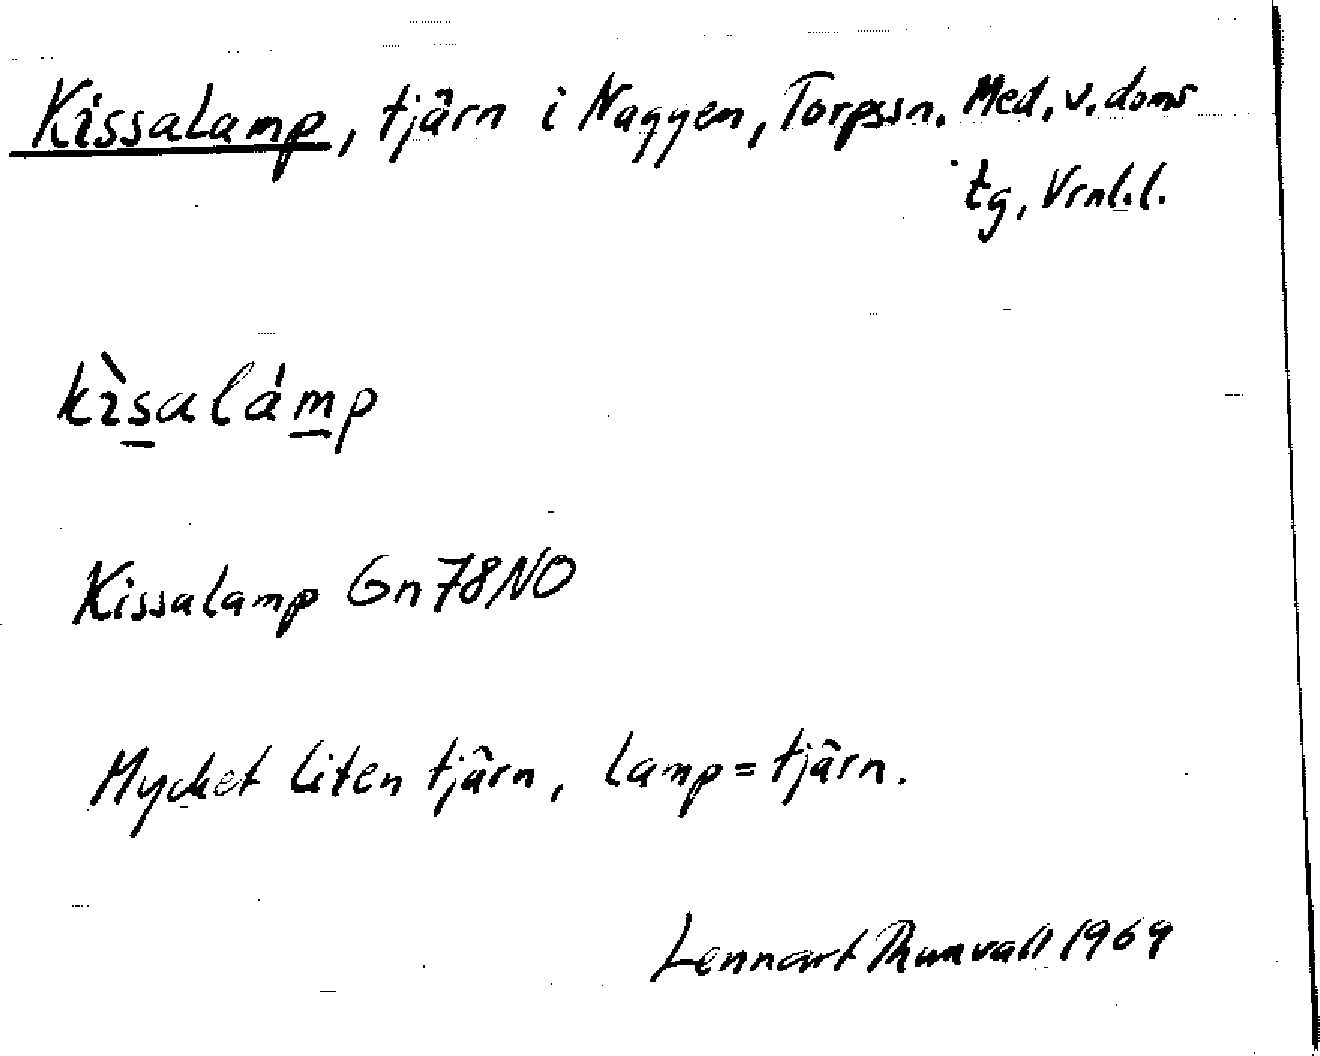 Kissalamp, tjärn i Naggen, Torpssn. Med. v. doms
tg, Vrnl.l.
kìsalámp
Kissalamp Gn78NO
Mycket liten tjärn, lamp = tjärn.
Lennart Thunvall 1969